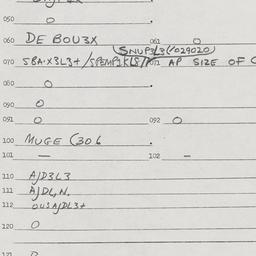 050 O
060 DE BOU3X 061 O
SNUP3L3(/029020)
070 SBA.X3L3+ /SPEMP1KLS/ 071 AP SIZE OF
080 O
090 O
091 O 092 O
100 MUGE (306
101 — 102 –
110 AJD3L3
111 AJDL,N.
112 OUSAJDL3+
120 O
121